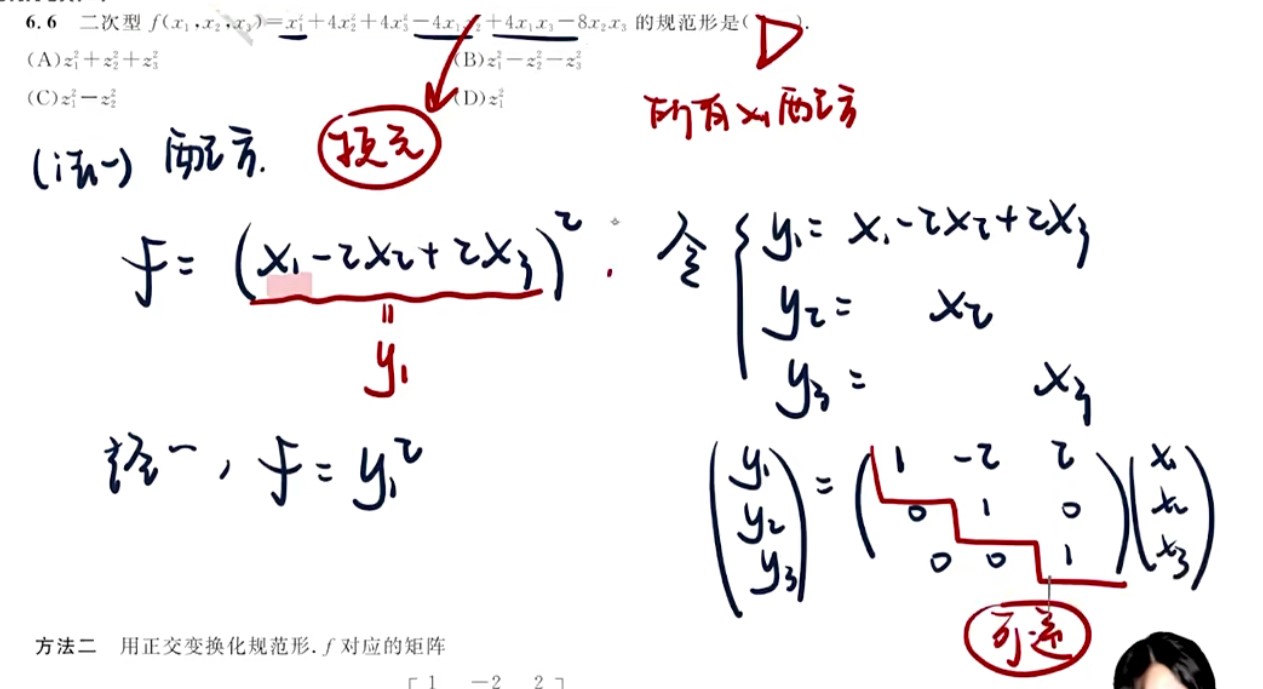 6.6 二次型 f(x₁,x₂,x₃)=x₁²+4x₂²+4x₃²-4x₁x₂+4x₁x₃-8x₂x₃ 的规范形是( D ).
(A)z₁²+z₂²+z₃² (B)z₁²-z₂²-z₃²
(C)z₁²-z₂² (D)z₁²
所有x₁配方
换元
(法一) 配方.
f = (x₁-2x₂+2x₃)².
令 { y₁= x₁-2x₂+2x₃
y₂= x₂
y₃= x₃
=
y₁
, f = y₁²
(y₁ y₂ y₃) = (1 -2 2
0 1 0
0 0 1) (x₁ x₂ x₃)
可逆
方法二 用正交变换化规范形. f 对应的矩阵
[ 1 -2 2 ]